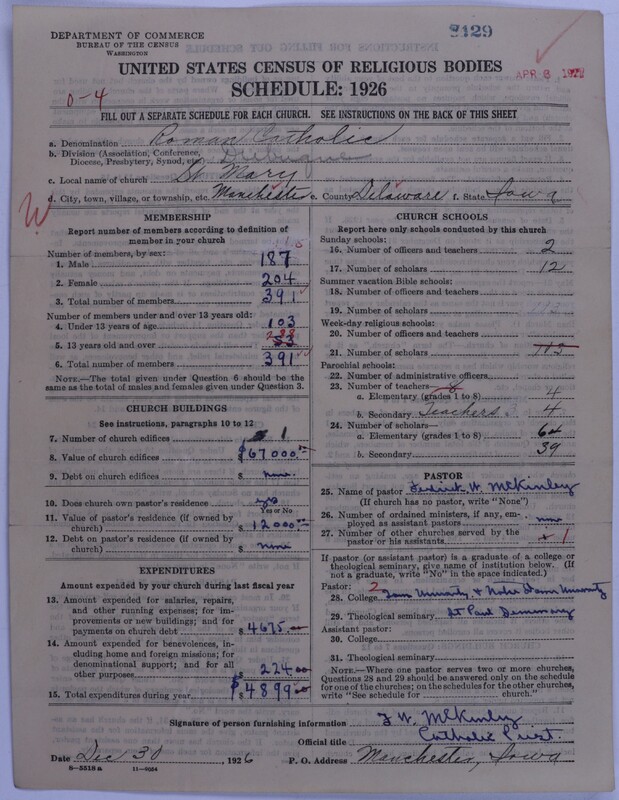 DEPARTMENT OF COMMERCE
BUREAU OF THE CENSUS
WASHINGTON
2129
APR 8 1927
UNITED STATES CENSUS OF RELIGIOUS BODIES
SCHEDULE: 1926
0-4
FILL OUT A SEPARATE SCHEDULE FOR EACH CHURCH. SEE INSTRUCTIONS ON THE BACK OF THIS SHEET
a. Denomination Roman Catholic
b. Division (Association, Conference, Diocese, Presbytery, Synod, etc.) Dubuque
c. Local name of church St Mary
d. City, town, village, or township, etc. Manchester e. County Delaware f. State Iowa
W
MEMBERSHIP
Report number of members according to definition of
member in your church
Number of members, by sex:
1. Male 187
2. Female 204
3. Total number of members 391
Number of members under and over 13 years old:
4. Under 13 years of age 103
5. 13 years old and over 288 53
6. Total number of members 391
NOTE.—The total given under Question 6 should be the
same as the total of males and females given under Question 3.
CHURCH BUILDINGS
See instructions, paragraphs 10 to 12
7. Number of church edifices 1
8. Value of church edifices $67000.00
9. Debt on church edifices $ none
10. Does church own pastor's residence yes
Yes or No
11. Value of pastor's residence (if owned by
church) $ 12000.00
12. Debt on pastor's residence (if owned by
church) $ none
EXPENDITURES
Amount expended by your church during last fiscal year
13. Amount expended for salaries, repairs,
and other running expenses; for im-
provements or new buildings; and for
payments on church debt $ 4675.00
14. Amount expended for benevolences, in-
cluding home and foreign missions; for
denominational support; and for all
other purposes $ 224.00
15. Total expenditures during year $4899.00
CHURCH SCHOOLS
Report here only schools conducted by this church
Sunday schools:
16. Number of officers and teachers 2
17. Number of scholars 12
Summer vacation Bible schools:
18. Number of officers and teachers
19. Number of scholars
Week-day religious schools:
20. Number of officers and teachers
21. Number of scholars 115
Parochial schools:
22. Number of administrative officers
23. Number of teachers— 8
a. Elementary (grades 1 to 8) 4
b. Secondary Teachers 4
24. Number of scholars—
a. Elementary (grades 1 to 8) 64
b. Secondary 39
PASTOR
25. Name of pastor W. McKinley
(If church has no pastor, write "None")
26. Number of ordained ministers, if any, em-
ployed as assistant pastors none
27. Number of other churches served by the
pastor or his assistants 1
If pastor (or assistant pastor) is a graduate of a college or
theological seminary, give name of institution below. (If
not a graduate, write "No" in the space indicated.)
Pastor: 2
28. College University & Notre Dame University
29. Theological seminary St Paul Seminary
Assistant pastor:
30. College
31. Theological seminary
NOTE.—Where one pastor serves two or more churches,
Questions 28 and 29 should be answered only on the schedule
for one of the churches; on the schedules for the other churches,
write "See schedule for church."
Signature of person furnishing information F W McKinley
Official title Catholic Priest.
Date Dec 30, 1926 P. O. Address Manchester, Iowa
8—5518 a 11—9064